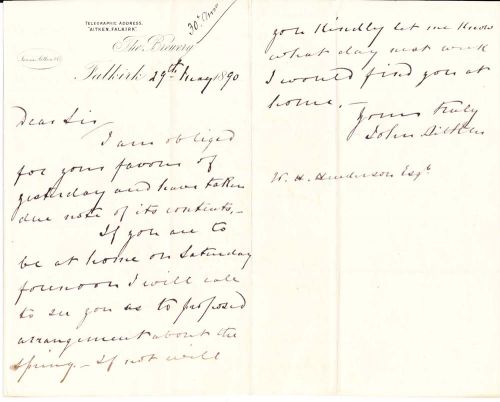 TELEGRAPHIC ADDRESS,
"AITKEN, FALKIRK."
The Brewery
Falkirk 29th May 1890
Dear Sir
I am obliged
for your favour of
yesterday and have taken
due note of its contents,-
If you are to
be at home on Saturday
forenoon I will call
to see you as to proposed
arrangement about the
Spring - If not will
you kindly let me know
what day next week
I would find you at
home. -
Yours truly
John Aitken
W. H. Henderson Esqr